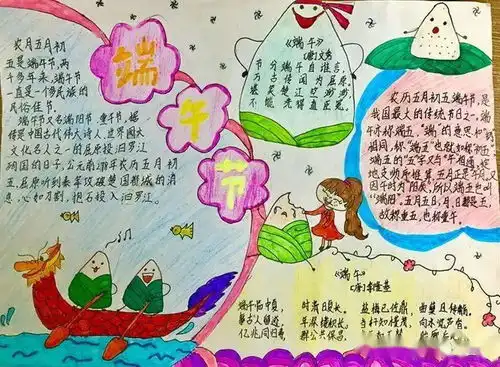 端午节
农历五月初
五是端午节,两
千多年来,端午节
一直是一个多民族的
民俗佳节。
端午节又名端阳节、重午节,据
传是中国古代伟大诗人、世界四大
文化名人之一的屈原投汨罗江
殉国的日子,公元前278年农历五月初
五,屈原听到秦军攻破楚国都城的消
息,心如刀割,抱石投入汨罗江。
《端午》
(唐)文秀
节分端午自谁言,
万古传闻为屈原。
堪笑楚江空渺渺,
不能洗得直臣冤。
农历五月初五端午节,是
我国最大的传统节日之一。端
午亦称端五,"端"的意思和"初"
相同,称"端五"也就如称"初五";
端五的"五"字又与"午"相通,按
地支顺序推算,五月正是"午"月。又
因午时为"阳辰",所以端五也叫
"端阳"。五月五日,月、日都是五,
故称重五,也称重午。
《端午》
(唐)李隆基
端午临中夏,时清日复长。盐梅已佐鼎,曲 且传觞。
事古人留迹,年深缕积长。当轩知槿茂,向水芦香。
亿兆同归寿,群公共保昌。